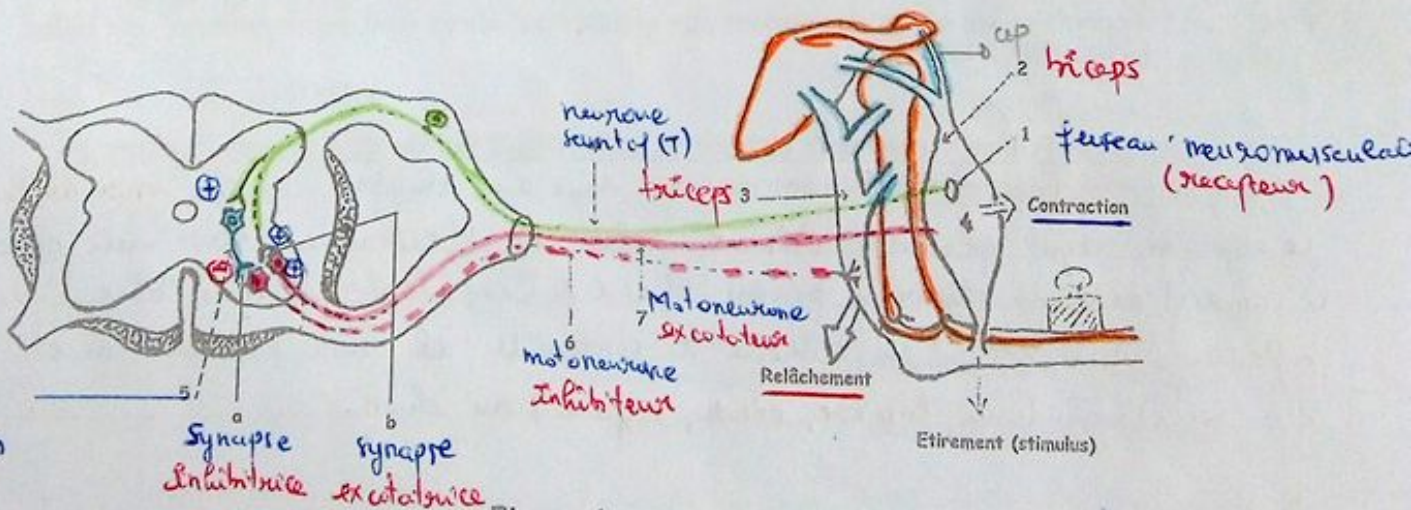 cep
2 biceps
1 fuseau neuromusculai
(recepteur)
neurone
sensitif (T)
triceps 3
4
Contraction
7
Motoneurone
excitateur
6
motoneurone
Inhibiteur
Relâchement
Etirement (stimulus)
5
a
Synapse
Inhibitrice
b
synapse
excitatrice